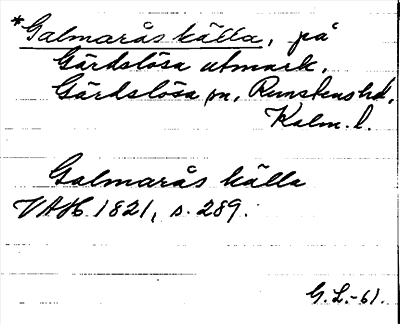 *Galmarås källa, på
Gärdslösa utmark.
Gärdslösa sn, Runstens hd,
Kalm. l.
Galmarås källa
VAH 1821, s. 289.
G.L.-61.